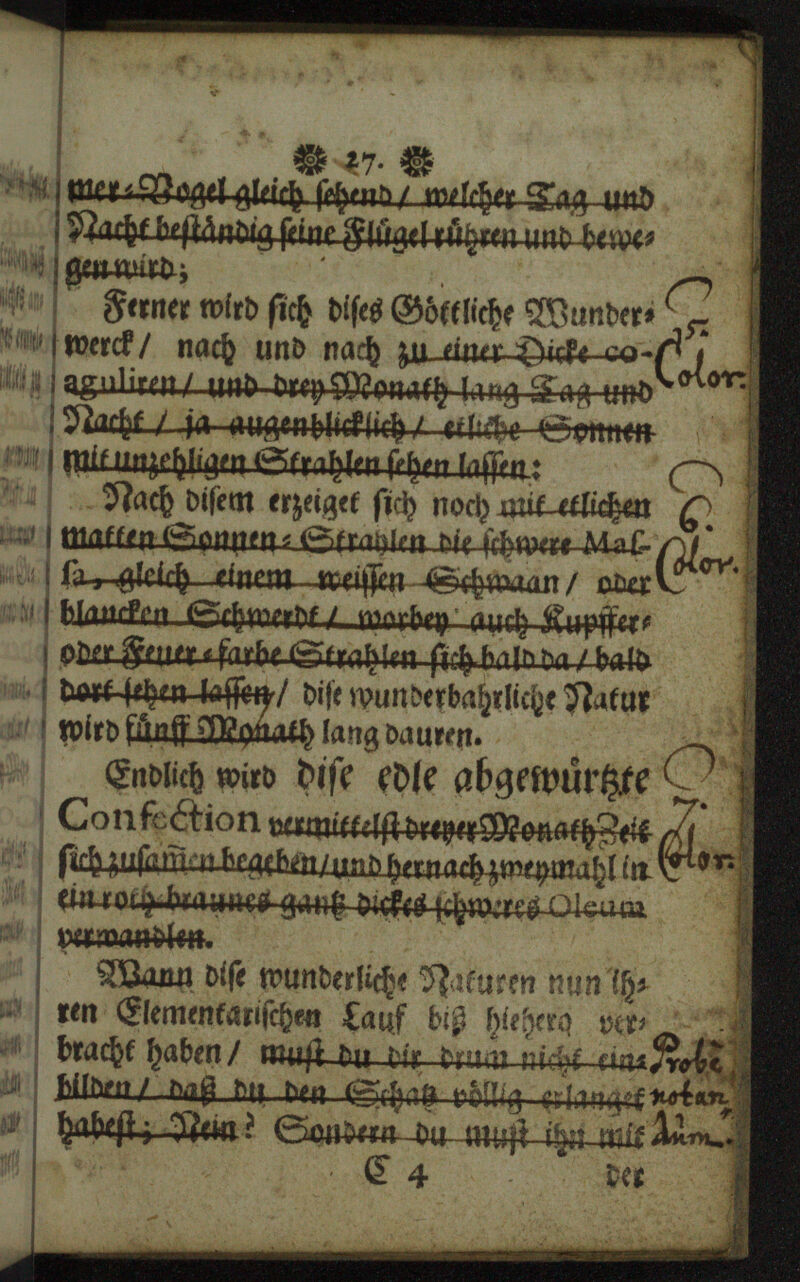 27.
mer-Vogel gleich sehend / welcher Tag und
Nacht beståndig seine Flůgel růhren und bewe-
gen wird;
Ferner wird sich dises Göttliche Wunder-
werck / nach und nach zu einer Dicke co-
aguliren / und drey Monath lang Tag und
Color.
Nacht / ja augenblicklich / etliche Sonnen
mit unzehligen Strahlen sehen lassen:
Nach disem erzeiget sich noch mit etlichen
6.
matten Sonnen-Strahlen die schwere Mas-
sa, gleich einem weissen Schwaan / oder
Color.
blancken Schwerdt / worbey auch Kupffer-
oder Feuer-farbe Strahlen sich bald da / bald
dort sehen lassen / dise wunderbahrliche Natur
wird fůnff Monath lang dauren.
Endlich wird dise edle abgewůrtzte
Confection vermittelst dreyer Monath Zeit
7.
sich zusam̃en begeben / und hernach zweymahl in
Color.
ein roth-braunes gantz dickes schweres Oleum
verwandlen.
Wann dise wunderliche Naturen nun ih-
ren Elementarischen Lauf biß hiehero ver-
bracht haben / must du dir drum nicht ein-
bilden / daß du den Schatz völlig erlanget
notan
habest; Nein? Sondern du must ihn mit
C 4 der